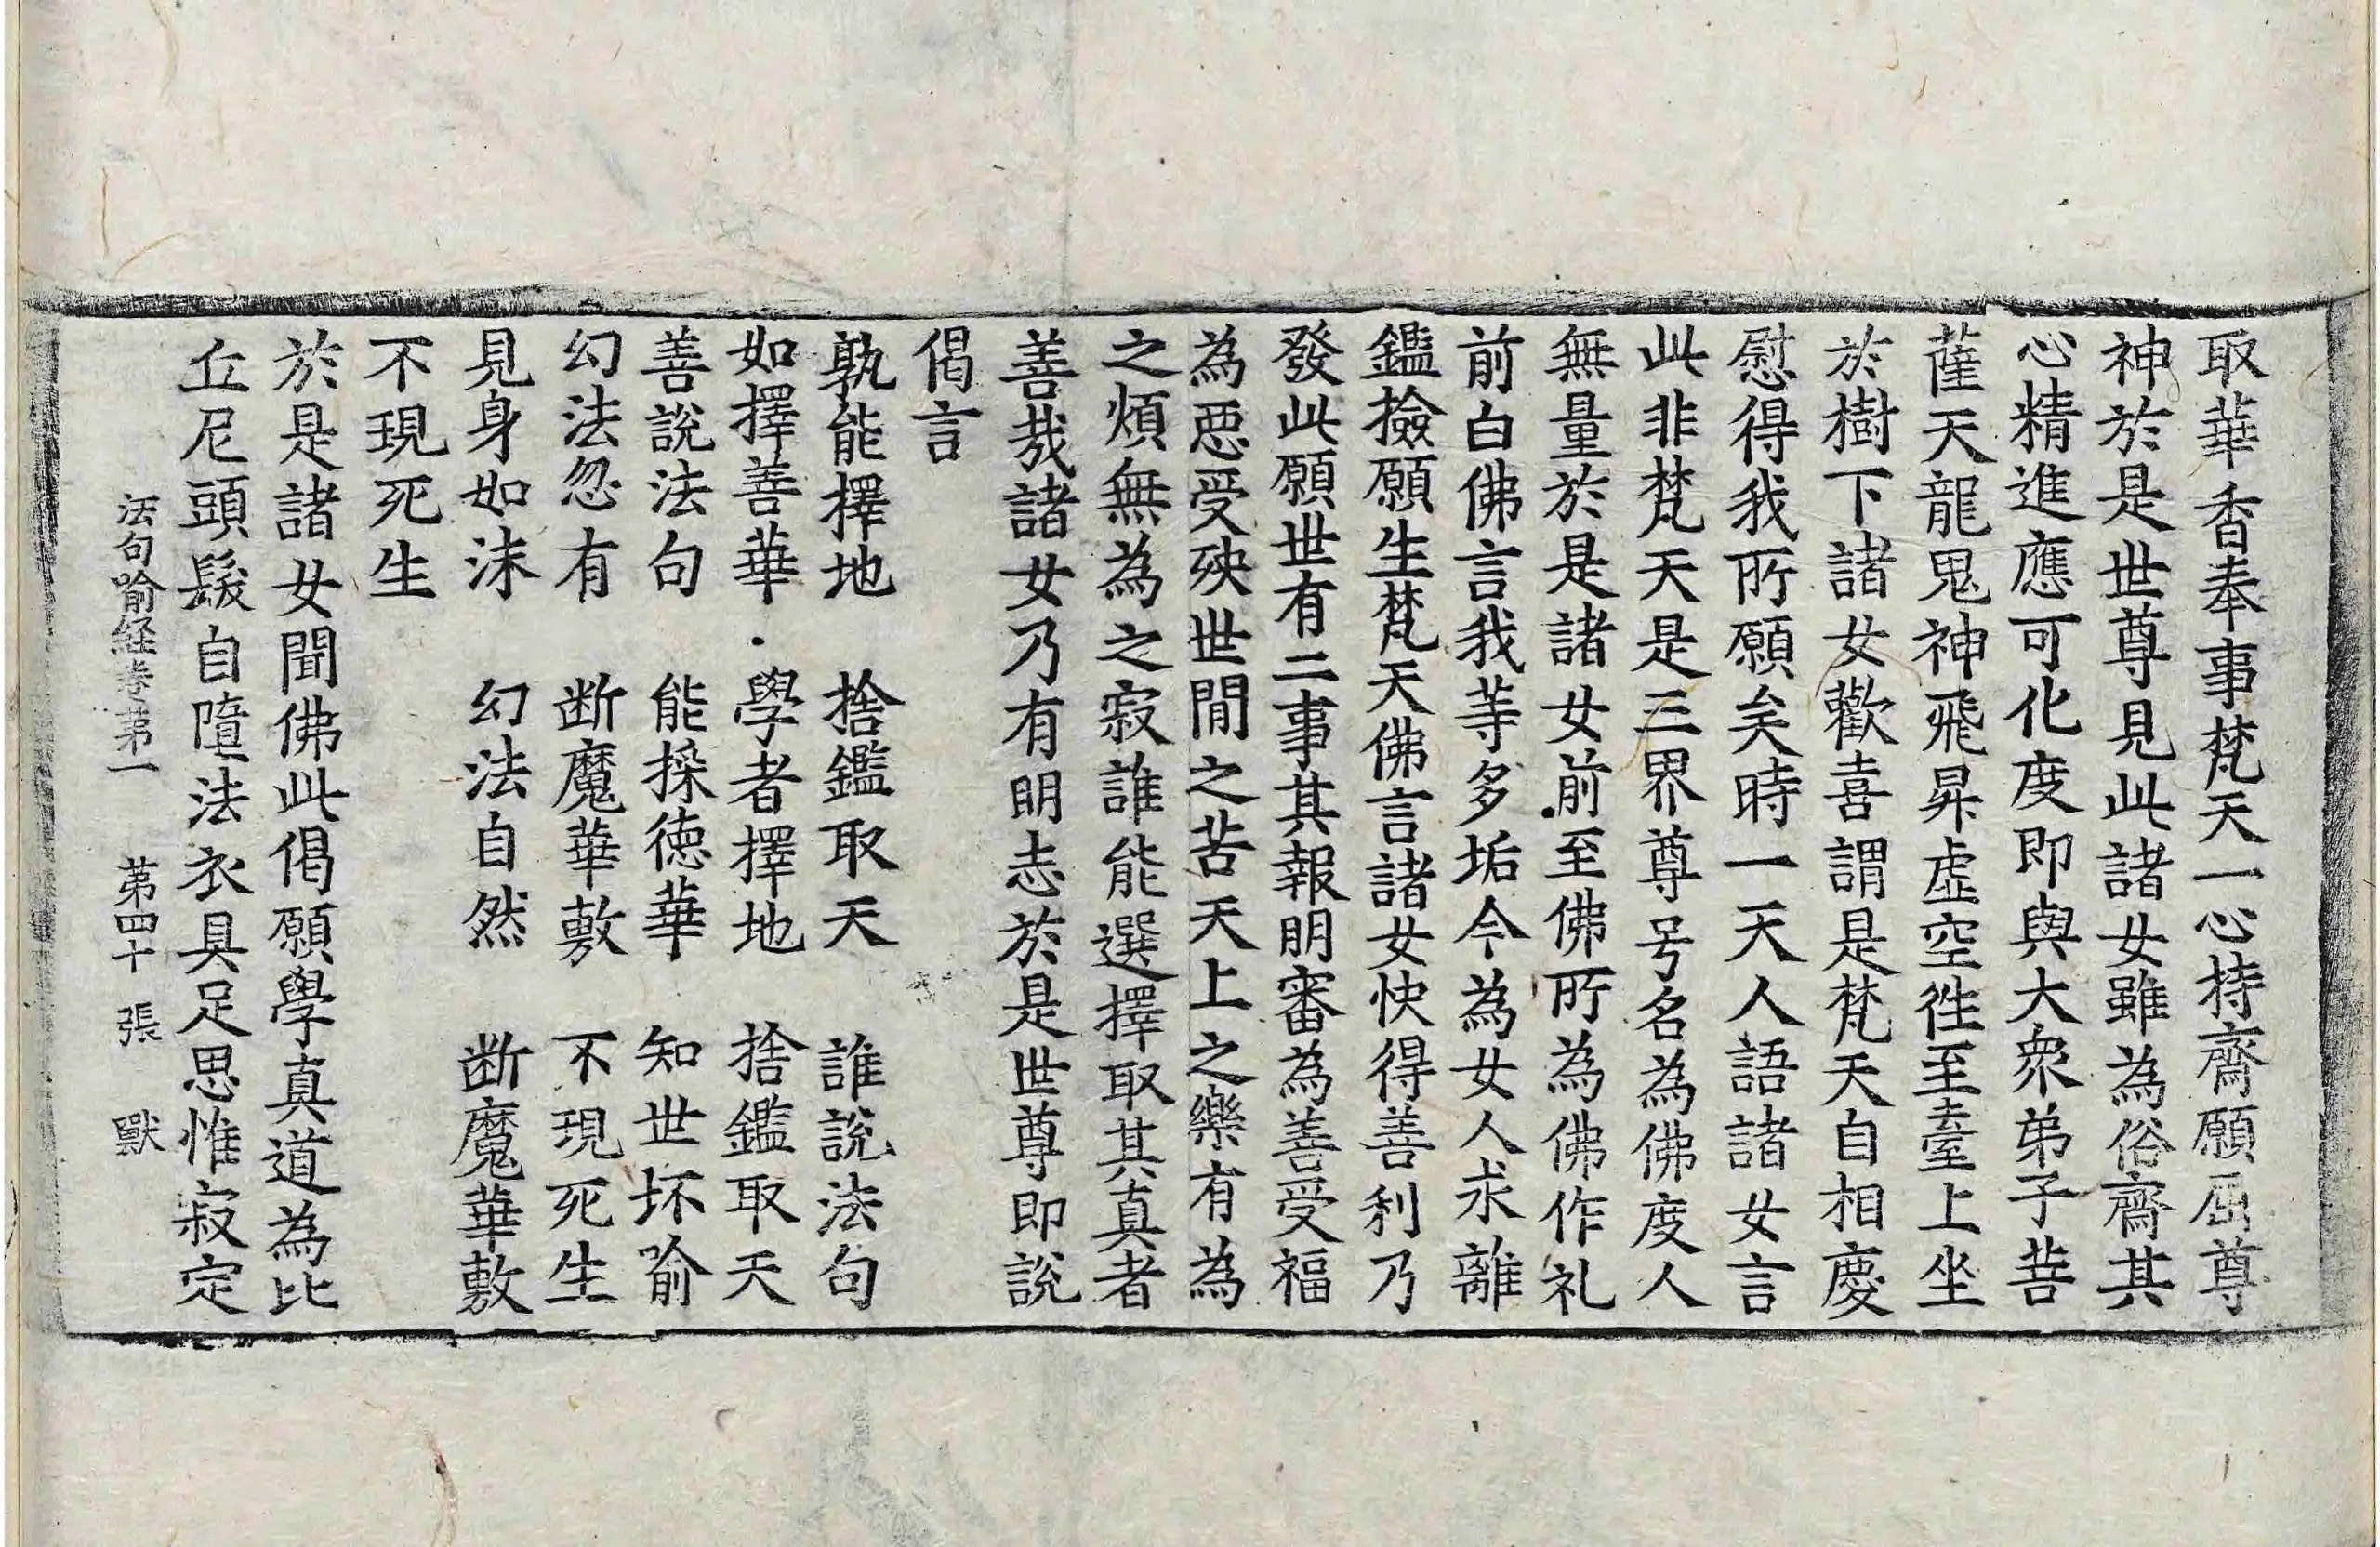 取華香奉事梵天一心持齋願屈尊
神於是世尊見此諸女雖為俗齋其
心精進應可化度即與大衆弟子菩
薩天龍鬼神飛昇虛空徃至臺上坐
於樹下諸女歡喜謂是梵天自相慶
慰得我所願矣時一天人語諸女言
此非梵天是三界尊号名為佛度人
無量於是諸女前至佛所為佛作礼
前白佛言我等多垢今為女人求離
鑑撿願生梵天佛言諸女快得善利乃
發此願世有二事其報明審為善受福
為惡受殃世間之苦天上之樂有為
之煩無為之寂誰能選擇取其真者
善㢤諸女乃有明志於是世尊即說
偈言
孰能擇地　捨鑑取天　誰說法句
如擇善華　學者擇地　捨鑑取天
善說法句　能採徳華　知世坏喻
幻法忽有　断魔華敷　不現死生
見身如沫　幻法自然　断魔華敷
不現死生
於是諸女聞佛此偈願學真道為比
丘尼頭髮自墮法衣具足思惟寂定
法句喻経卷苐一　苐四十張　獸